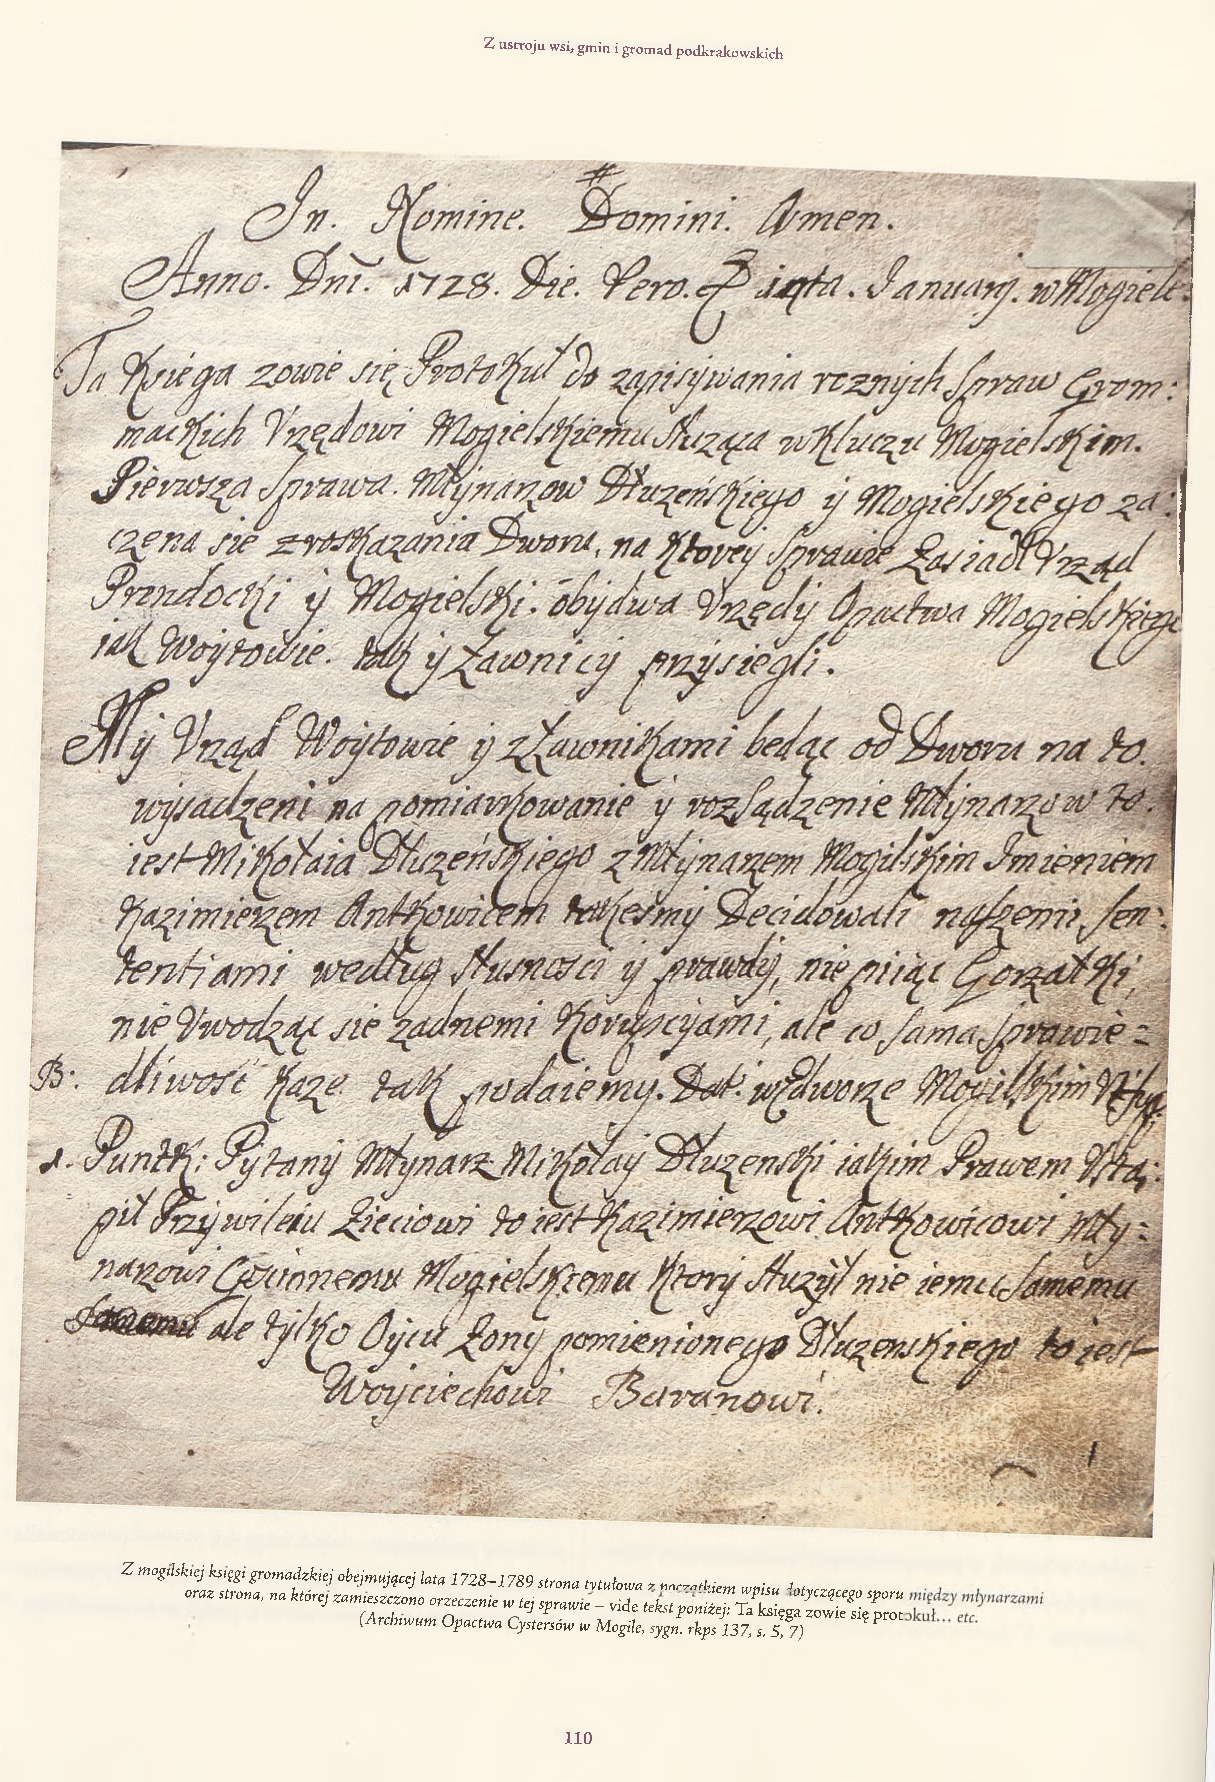 Z ustroju wsi, gmin i gromad podkrakowskich
In. Nomine. Domini. Amen.
Anno. Dni. 1728. Die. Vero. Januarij. w Mogiele.
Ta Księga zowie się Protokuł do zapisywania rcznych Spraw Grom:
mackich Vrzędowi Mogielskiemu służąca w Kluczu Mogielskim.
Pierwsza Sprawa. Młynarzow Dłuzeńskiego y Mogielskiego za:
czena sie z roskazania Dworu, na Ktorey Sprawie Zasiadł Vrząd
Prandocki y Mogielski. obydwa Vrzędy Opactwa Mogielskiego
iak Woytowie. tak y Ławnicy przysiegli.
My Vrząd Woytowie y z Ławnikami będąc od Dworu na to.
wysadzeni na pomiarkowanie y rozsądzenie Młynarzow to.
iest Mikołaia Dłuzeńskiego z Młynarzem Mogilskim Imieniem
Kazimierzem Antkowicem takesmy Decidowali naszemi Sen:
tentiami według słusnosci y prawdy, nie piiąc Gorzałki,
nie Vwodząc sie zadnemi Korupcyjami, ale co sama sprawie=
B: dliwość kaze tak podaiemy. Dat: w dworze Mogilskim
1. Puntk: Pytany Młynarz Mikołay Dłuzenski iakim Prawem Vstą:
pił Przywileiu Zieciowi to iest Kazimierzowi Antkowicowi Mły:
narzowi Mogielskiemu Ktory służył nie iemu samemu
ale tylko Oycu Zony pomienionego Dłuzenskiego to iest
Woyciechowi Baranowi.
Z mogilskiej księgi gromadzkiej obejmującej lata 1728–1789 strona tytułowa z początkiem wpisu dotyczącego sporu między młynarzami
oraz strona, na której zamieszczono orzeczenie w tej sprawie – vide tekst poniżej: Ta księga zowie się protokuł... etc.
(Archiwum Opactwa Cystersów w Mogile, sygn. rkps 137, s. 5, 7)
110